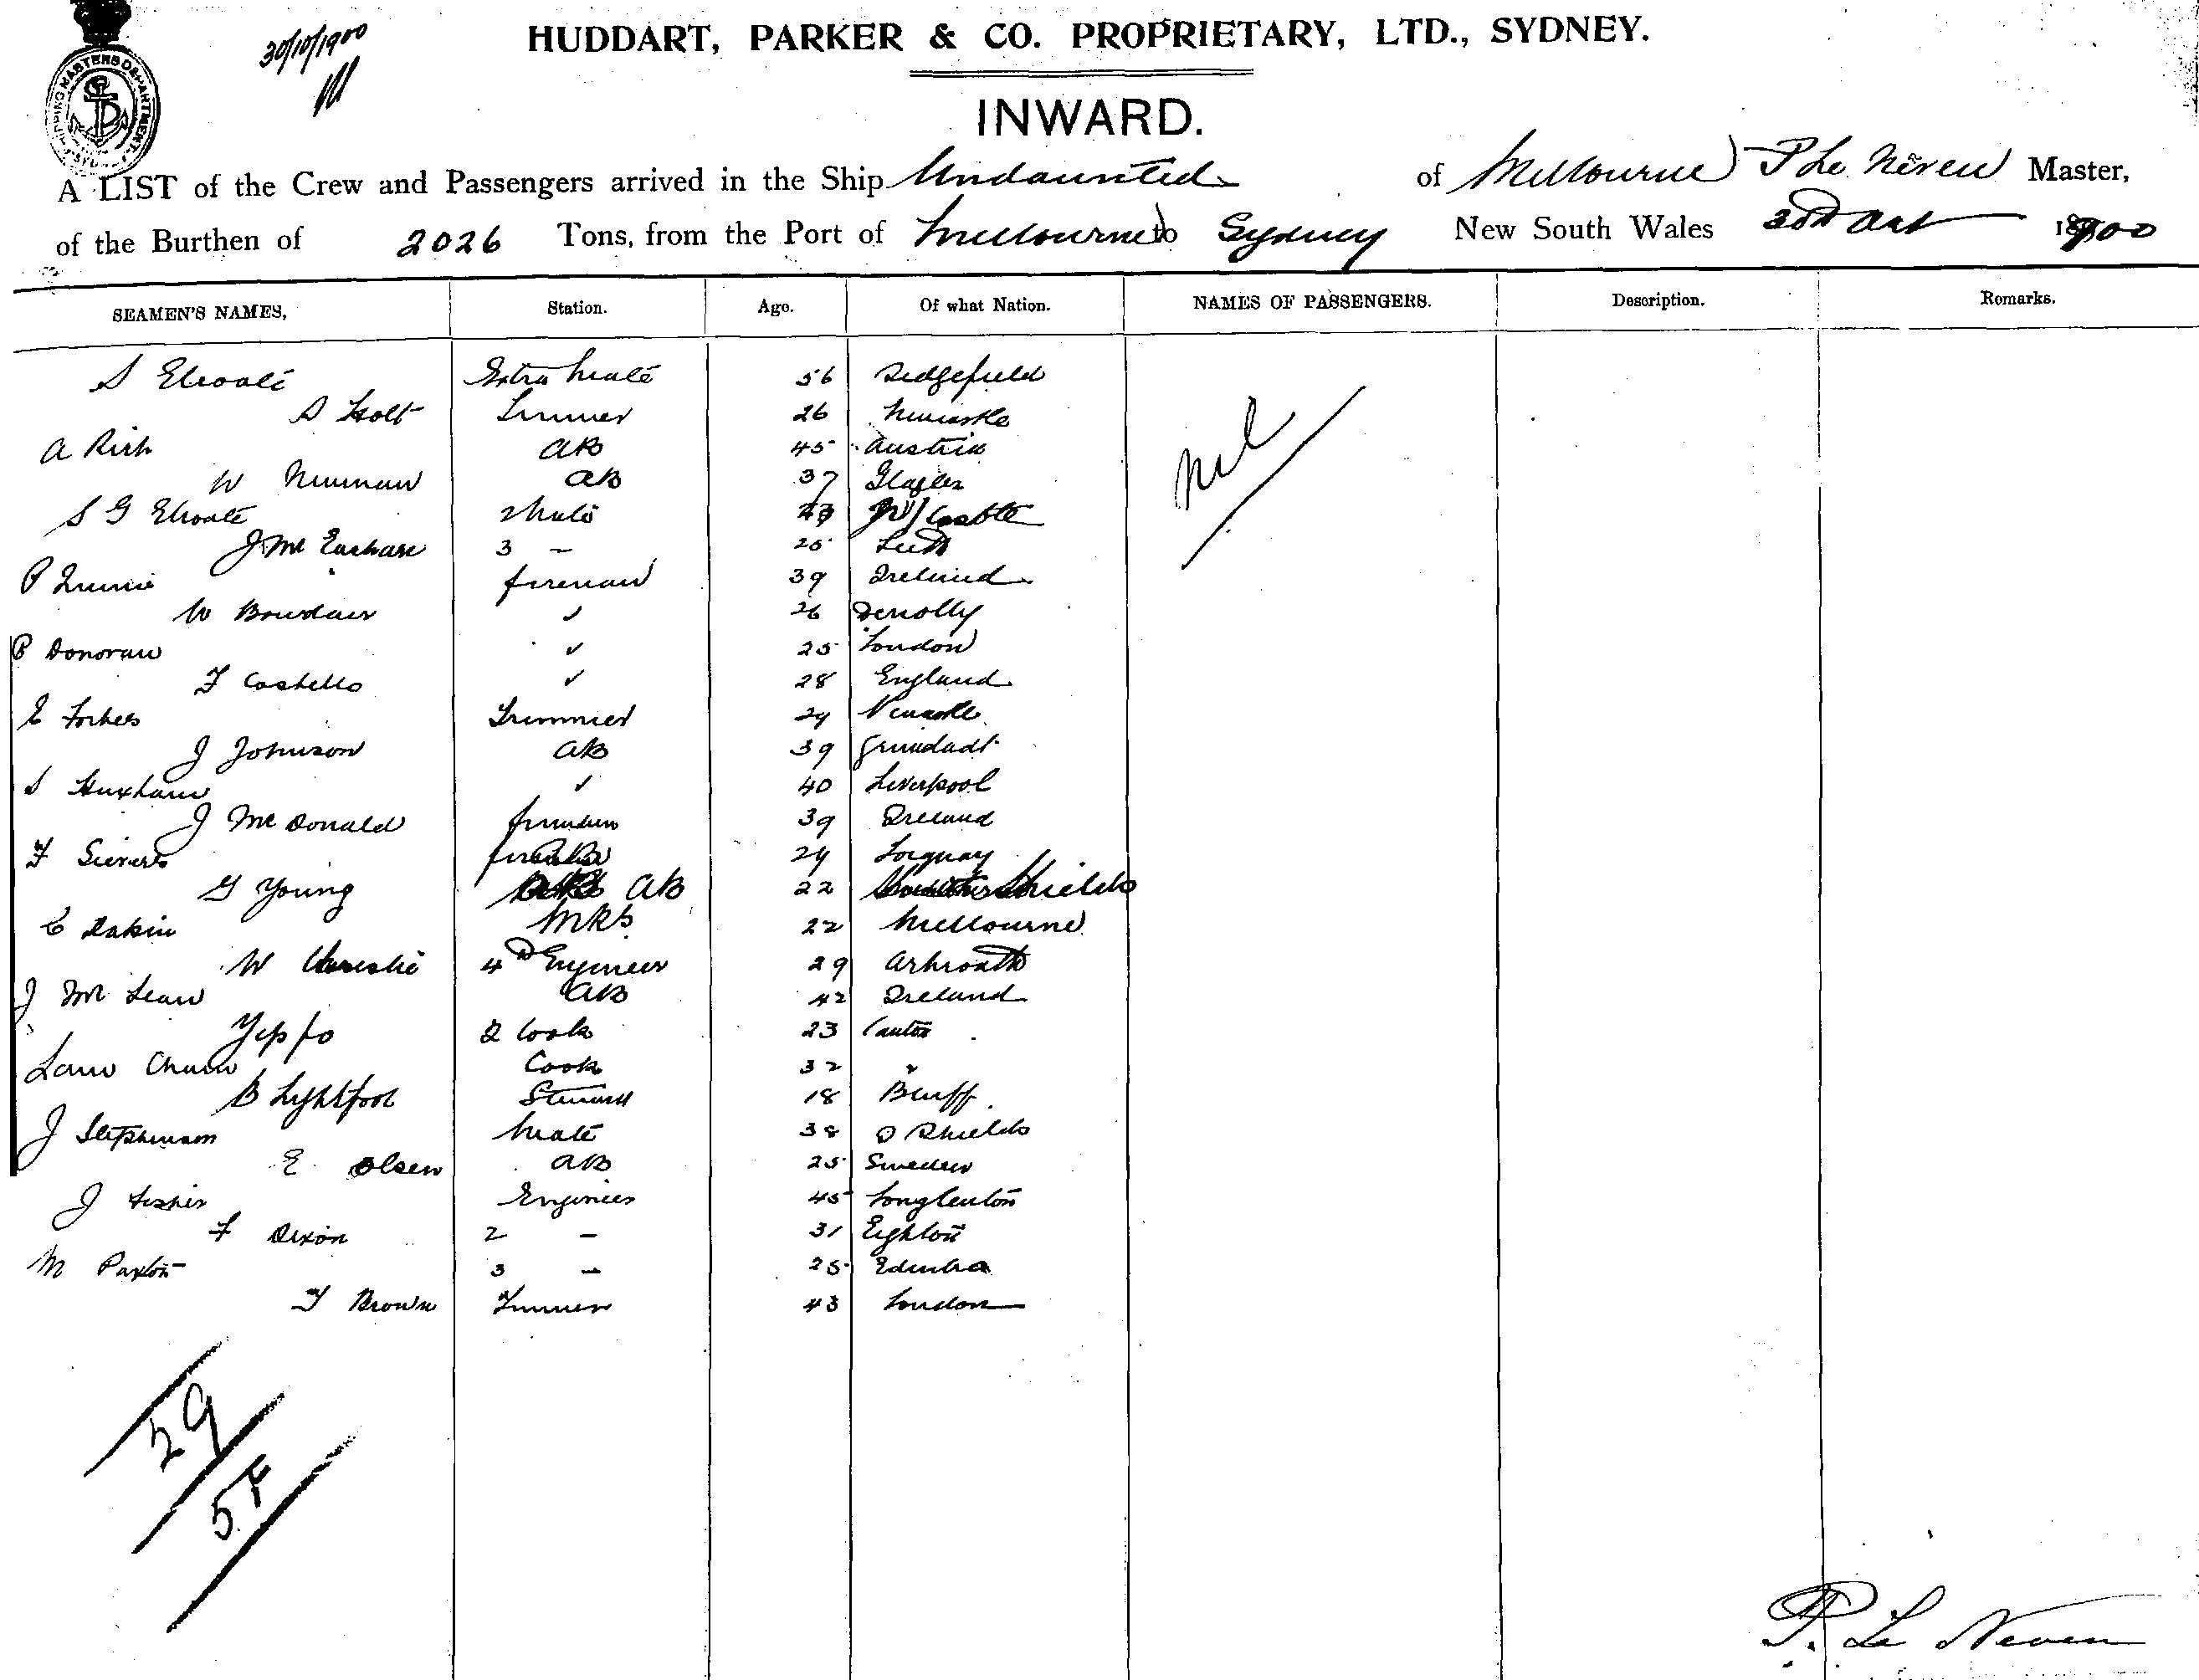 30/10/1900
HUDDART, PARKER & CO. PROPRIETARY, LTD., SYDNEY.
INWARD.
SHIPPING MASTERS DEPARTMENT SYDNEY
A LIST of the Crew and Passengers arrived in the Ship Undaunted of Melbourne P Le Neven Master,
of the Burthen of 2026 Tons, from the Port of Melbourne to Sydney New South Wales 30th Oct 1900
SEAMEN'S NAMES, Station. Age. Of what Nation. NAMES OF PASSENGERS. Description. Remarks.
S Extra Mate 56 Sedgefield
S Holt Trimmer 26 Newcastle
A Rish AB 45 Austria
W Newman AB 37
S G 2 Mate
J Mc 3 – 25 Leith
P fireman 39 Ireland
W ✓ 26
P Donovan ✓ 25 London
F Costello ✓ 28 England
E Forbes Trimmer 24 Newcastle
J Johnson AB 39
S Huxham ✓ 40 Liverpool
J Mc Donald fireman 39 Ireland
F Sieverts 24 Torquay
G Young AB 22 Shields
C Dakin MRS 22 Melbourne
W 4th Engineer 29 Arbroath
J Mc Lean AB 42 Ireland
Yep fo 2 Cook 23 Canton
Cook 32 "
B Lightfoot Steward 18 Bluff
J Stephenson Mate 38 S Shields
E Olsen AB 25 Sweden
J Engineer 45
F Dixon 2 – 31 Eighton
M Paxton 3 – 25 Edinbro
T Brown Trimmer 43 London
Nil
29
P. Le Neven